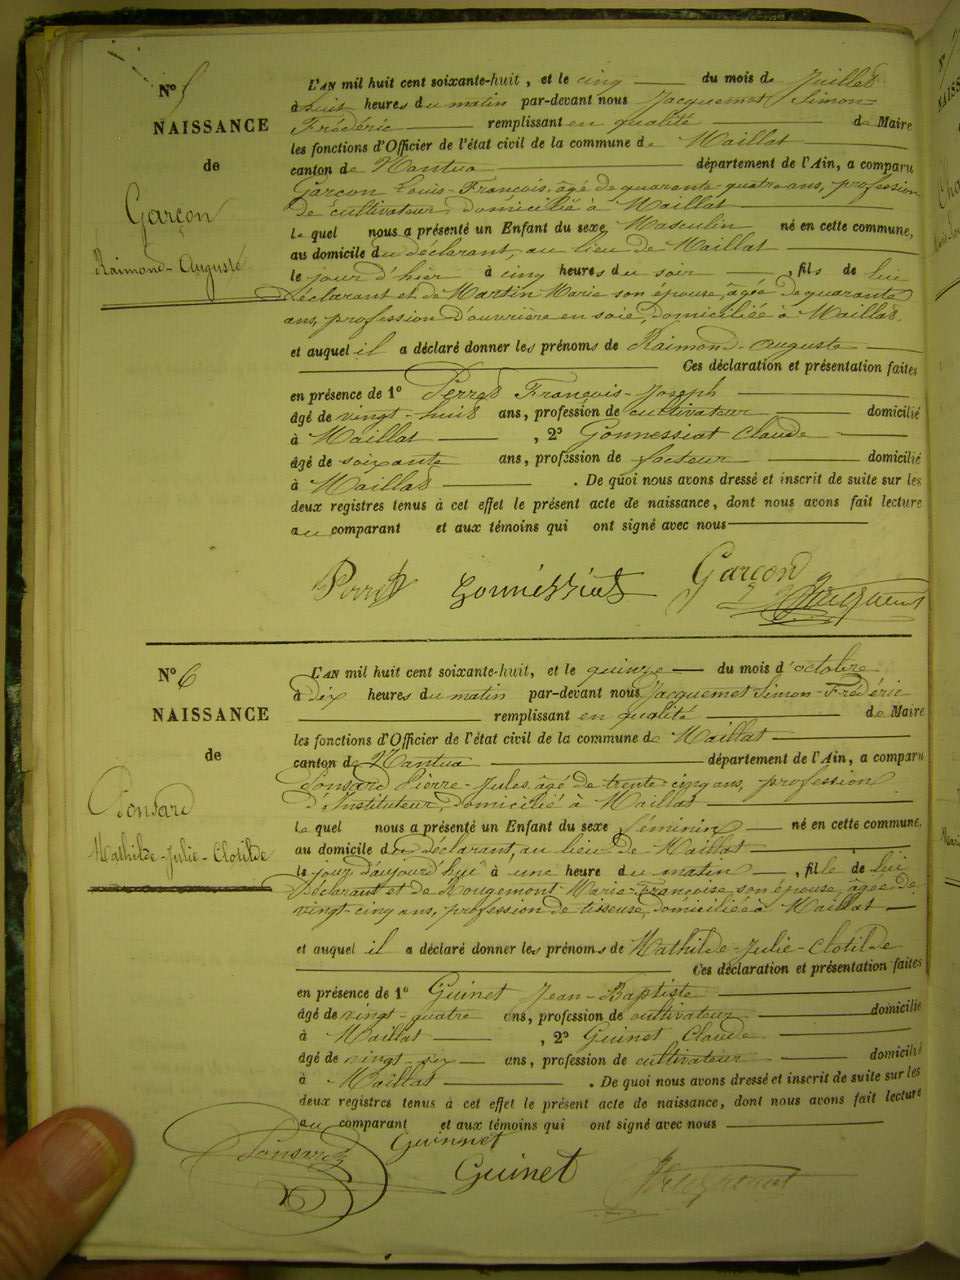 N° 5
NAISSANCE
de
Garçon
Raimond-Auguste
L'AN mil huit cent soixante-huit, et le cinq du mois de Juillet
à huit heures du matin par-devant nous Jacquemet Simon-
Frédéric remplissant en qualité de Maire
les fonctions d'Officier de l'état civil de la commune de Maillat
canton de Nantua département de l'Ain, a comparu
Garçon Louis-François, âgé de quarante-quatre ans, profession
de cultivateur, domicilié à Maillat
le quel nous a présenté un Enfant du sexe Masculin né en cette commune,
au domicile du déclarant, au lieu de Maillat
le jour d'hier à cinq heures du soir, fils de lui
déclarant et de Martin Marie son épouse, âgée de quarante
ans, profession d'ouvrière en soie, domiciliée à Maillat.
et auquel il a déclaré donner les prénoms de Raimond-Auguste
Ces déclaration et présentation faites
en présence de 1° Perret François-Joseph
âgé de vingt-huit ans, profession de cultivateur domicilié
à Maillat, 2° Gonnessiat Claude
âgé de soixante ans, profession de facteur domicilié
à Maillat. De quoi nous avons dressé et inscrit de suite sur les
deux registres tenus à cet effet le présent acte de naissance, dont nous avons fait lecture
au comparant et aux témoins qui ont signé avec nous
Perret Gonnessiat Garçon Jacquemet
N° 6
NAISSANCE
de
Ponsard
Mathilde-Julie-Clotilde
L'AN mil huit cent soixante-huit, et le quinze du mois d'octobre
à dix heures du matin par-devant nous Jacquemet Simon-Frédéric
remplissant en qualité de Maire
les fonctions d'Officier de l'état civil de la commune de Maillat
canton de Nantua département de l'Ain, a comparu
Ponsard Pierre-Jules, âgé de trente-cinq ans, profession
d'Instituteur, domicilié à Maillat
le quel nous a présenté un Enfant du sexe féminin né en cette commune,
au domicile du déclarant, au lieu de Maillat
le jour d'aujourd'hui à une heure du matin, fille de lui
déclarant et de Rougemont Marie-Françoise, son épouse, âgée de
vingt-cinq ans, profession de tisseuse, domiciliée à Maillat
et auquel il a déclaré donner les prénoms de Mathilde-Julie-Clotilde
Ces déclaration et présentation faites
en présence de 1° Guinet Jean-Baptiste
âgé de vingt-quatre ans, profession de cultivateur domicilié
à Maillat, 2° Guinet Claude
âgé de vingt-six ans, profession de cultivateur domicilié
à Maillat. De quoi nous avons dressé et inscrit de suite sur les
deux registres tenus à cet effet le présent acte de naissance, dont nous avons fait lecture
au comparant et aux témoins qui ont signé avec nous
Ponsard Guinnet
Guinet Jacquemet